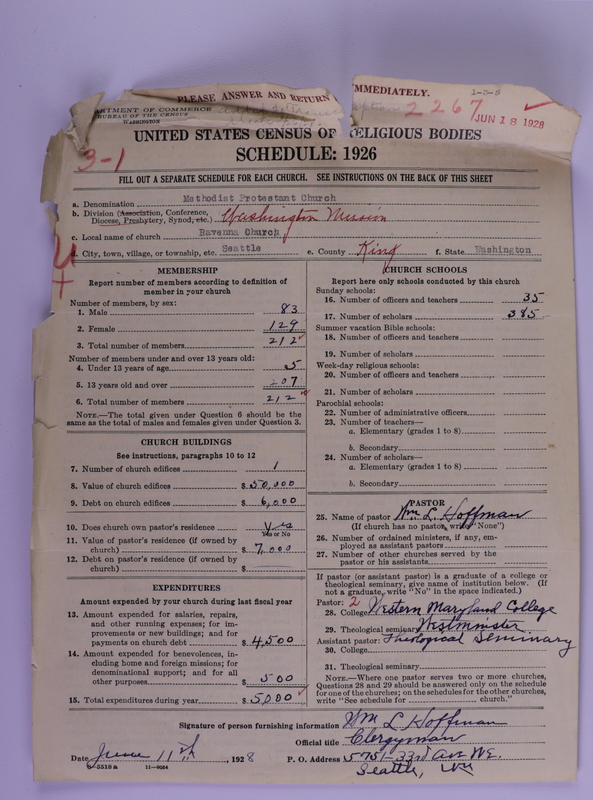 PLEASE ANSWER AND RETURN IMMEDIATELY.
1-3-8
2267
JUN 18 1928
DEPARTMENT OF COMMERCE
BUREAU OF THE CENSUS
WASHINGTON
UNITED STATES CENSUS OF RELIGIOUS BODIES
3-1
SCHEDULE: 1926
FILL OUT A SEPARATE SCHEDULE FOR EACH CHURCH. SEE INSTRUCTIONS ON THE BACK OF THIS SHEET
a. Denomination Methodist Protestant Church
b. Division (Association, Conference, Diocese, Presbytery, Synod, etc.) Washington Mission
c. Local name of church Ravenna Church
d. City, town, village, or township, etc. Seattle e. County King f. State Washington
MEMBERSHIP
Report number of members according to definition of
member in your church
Number of members, by sex:
1. Male 83
2. Female 129
3. Total number of members 212
Number of members under and over 13 years old:
4. Under 13 years of age 5
5. 13 years old and over 207
6. Total number of members 212
NOTE.—The total given under Question 6 should be the
same as the total of males and females given under Question 3.
CHURCH BUILDINGS
See instructions, paragraphs 10 to 12
7. Number of church edifices 1
8. Value of church edifices $ 50,000
9. Debt on church edifices $ 6,000
10. Does church own pastor's residence Yes
Yes or No
11. Value of pastor's residence (if owned by
church) $ 7,000
12. Debt on pastor's residence (if owned by
church) $
EXPENDITURES
Amount expended by your church during last fiscal year
13. Amount expended for salaries, repairs,
and other running expenses; for im-
provements or new buildings; and for
payments on church debt $ 4,500
14. Amount expended for benevolences, in-
cluding home and foreign missions; for
denominational support; and for all
other purposes $ 500
15. Total expenditures during year $ 5000
CHURCH SCHOOLS
Report here only schools conducted by this church
Sunday schools:
16. Number of officers and teachers 35
17. Number of scholars 385
Summer vacation Bible schools:
18. Number of officers and teachers
19. Number of scholars
Week-day religious schools:
20. Number of officers and teachers
21. Number of scholars
Parochial schools:
22. Number of administrative officers
23. Number of teachers—
a. Elementary (grades 1 to 8)
b. Secondary
24. Number of scholars—
a. Elementary (grades 1 to 8)
b. Secondary
PASTOR
25. Name of pastor Wm. L. Hoffman
(If church has no pastor, write "None")
26. Number of ordained ministers, if any, em-
ployed as assistant pastors
27. Number of other churches served by the
pastor or his assistants
If pastor (or assistant pastor) is a graduate of a college or
theological seminary, give name of institution below. (If
not a graduate, write "No" in the space indicated.)
Pastor: 2
28. College Western Maryland College
29. Theological seminary Westminister
Assistant pastor: Theological Seminary
30. College
31. Theological seminary
NOTE.—Where one pastor serves two or more churches,
Questions 28 and 29 should be answered only on the schedule
for one of the churches; on the schedules for the other churches,
write "See schedule for church."
Signature of person furnishing information Wm L Hoffman
Official title Clergyman
Date June 11th, 1928 P. O. Address 5751-33rd Ave NE.
Seattle, Wn
8-5518a 11-9064